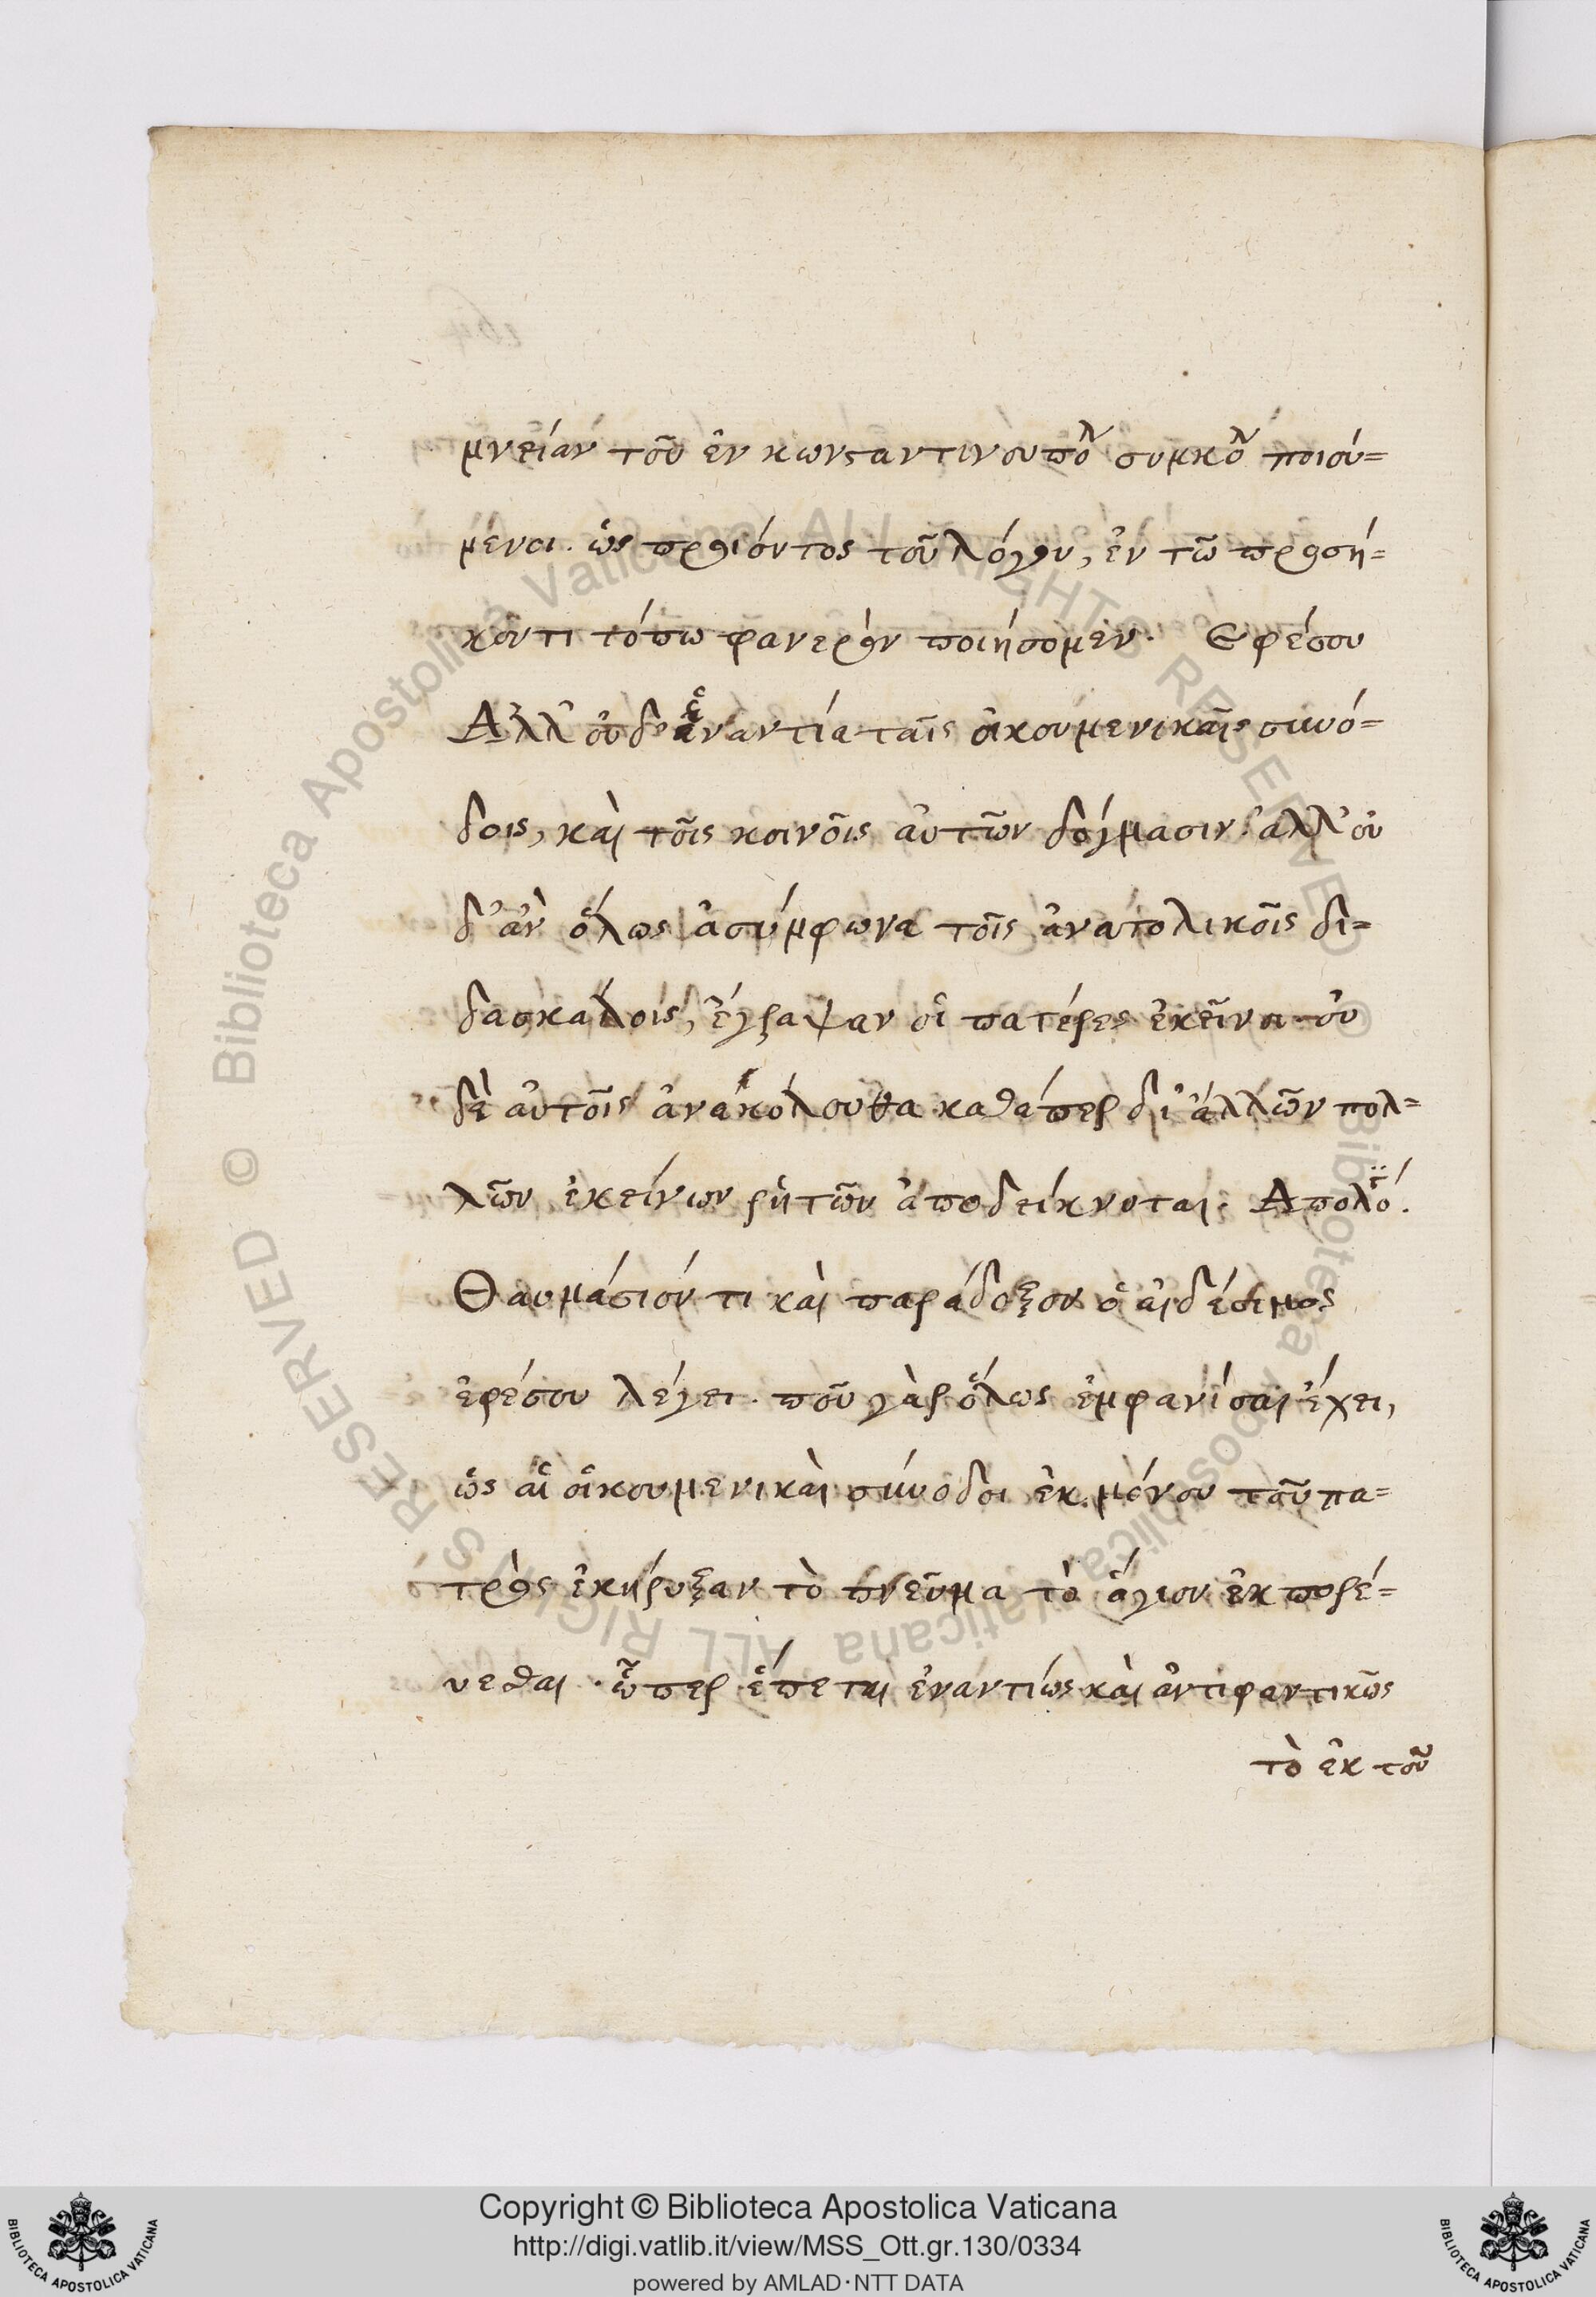 μνείαν τοῦ ἐν κωνσταντινουπολ συμβολ ποιού=
μενοι. ὡς προιόντος τοῦ λόγου, ἐν τῶ προσή=
κοντι τόπω φανερὸν ποιήσομεν. Εφέσου
Αλλ' οὐδ' ἐναντία ταῖς οἰκουμενικαῖς συνό=
δοις, καὶ τοῖς κοινοῖς αὐτῶν δόγμασιν. ἀλλ' οὐ
δ' ἀν ὅλως ἀσύμφωνα τοῖς ἀνατολικοῖς δι=
δασκάλοις, ἔγραψαν οἱ πατέρες ἐκεῖνοι. οὐ
δὲ αὐτοῖς ἀνακόλουθα καθάπερ δι' ἀλλῶν πολ=
λῶν ἐκείνων ῥητῶν ἀποδείκνυται. Απολό.
Θαυμάσιόν τι καὶ παράδοξον ὁ αἰδέσιμος
ἐφέσου λέγει. ποῦ γὰρ ὅλως ἐμφανίσαι ἔχει,
ὡς αἱ οἰκουμενικαὶ σύνοδοι ἐκ μόνου τοῦ πα=
τρὸς ἐκήρυξαν τὸ πνεῦμα τὸ ἅγιον ἐκπορέ=
υεσθαι. ὧπερ ἕπεται ἐναντίως καὶ ἀντιφαντικῶς
τὸ ἐκ τοῦ
Copyright © Biblioteca Apostolica Vaticana
http://digi.vatlib.it/view/MSS_Ott.gr.130/0334
powered by AMLAD·NTT DATA